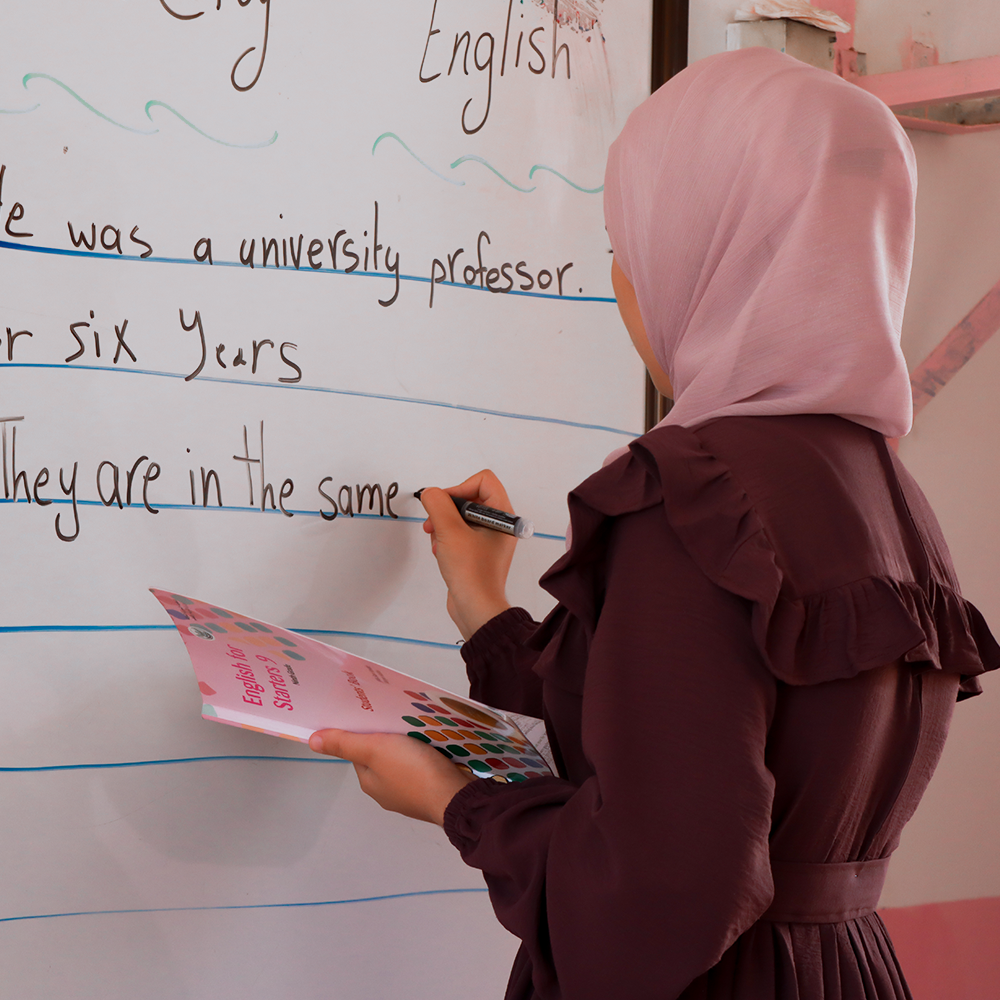 English
was a university professor.
six Years
They are in the same
English for
Starters 9
Students' Book